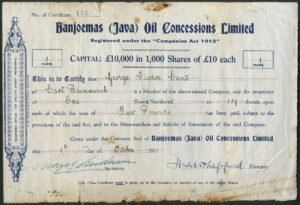 No. of Certificate 115
Banjoemas (Java) Oil Concessions Limited
Registered under the "Companies Act 1915"
CAPITAL: £10,000 in 1,000 Shares of £10 each
This is to Certify that George
of East Brunswick is a Member of the above-named Company, and the proprietor
of One Share Numbered to 179 therein, upon
each of which the sum of Pounds has been paid, subject to the
provisions of the said Act, and to the Memorandum and Articles of Association of the said Company.
Given under the Common Seal of Banjoemas (Java) Oil Concessions Limited
this day of 192
Secretary. Director.
NB.—The Certificate must be given up to the Company on transfer of any of the above Shares.